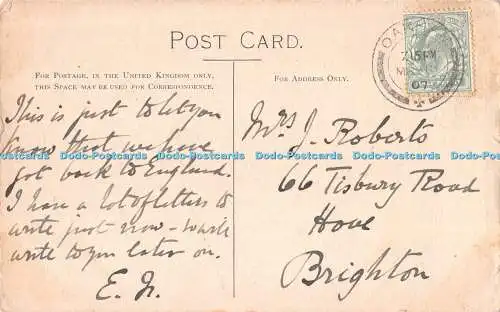 POST CARD.
FOR POSTAGE, IN THE UNITED KINGDOM ONLY,
THIS SPACE MAY BE USED FOR CORRESPONDENCE.
FOR ADDRESS ONLY.
This is just to let you
know that we have
got back to England.
I have a lot of letters to
write just now - 
write to you later on.
E. Jr.
Mrs J. Roberts
66 Tisbury Road
Hove
Brighton
07
Dodo-Postcards Dodo-Postcards Dodo-Postcards Dodo-Postcards